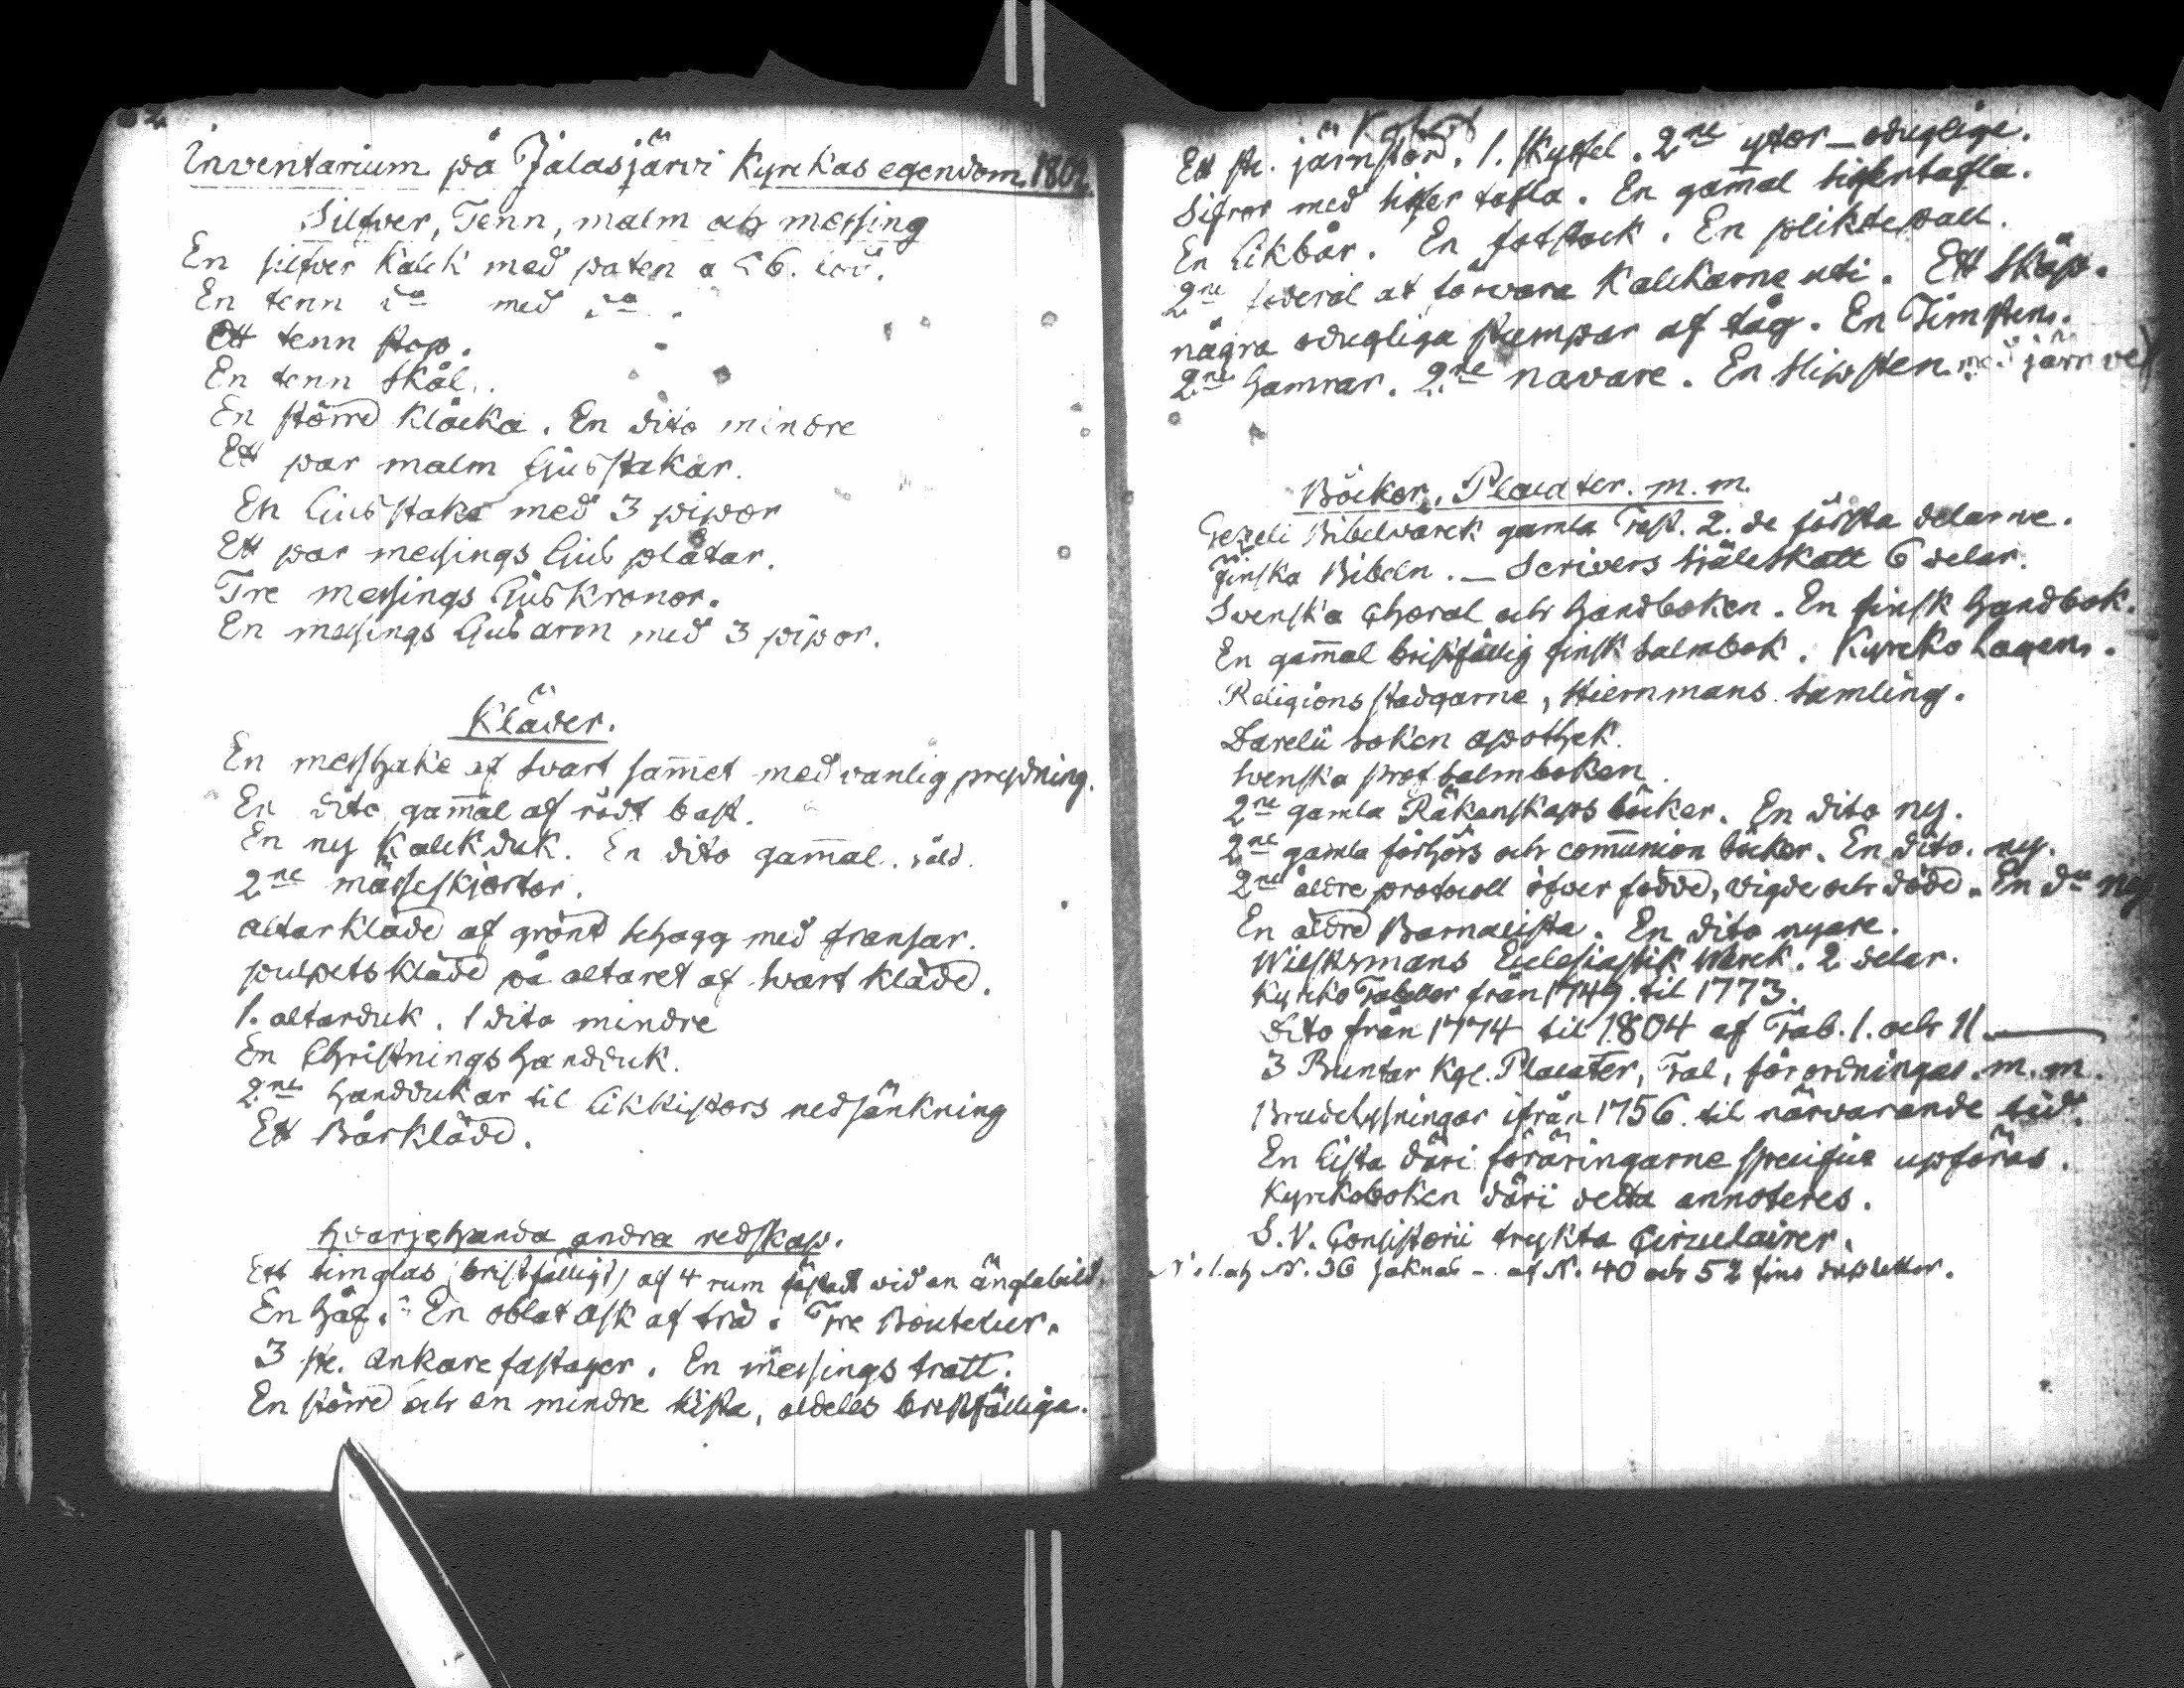 Inventarium på Jalasjärvi Kyrckas egendom 1802.
Silfver, Tenn, malm och messing
En silfver Kalck med paten a 56. lod.
En tenn do med do.
Ett tenn stop.
En tenn skål.
En större klåcka. En dito mindre
Ett par malm Liusstakar.
En Liusstake med 3 pipor
Ett par messings Lius plåtar.
Tre messings Liuskronor.
En messings Lius arm med 3 pipor.
Kläder.
En messhake af svart sam̅et med vanlig prydning.
En dito gam̅al af rödt bast.
En ny Kalckduk. En dito gam̅al. såld.
2ne mässeskjortor.
altarkläde af grönt schagg med fransar.
pulpetskläde på altaret af svart kläde.
1. altarduk. 1 dito mindre
En Christnings handduk.
2ne handdukar til Likkistors nedsänkning
Ett Bårkläde.
Hvarjehanda andra redskap.
Ett timglas (bristfälligt) af 4 rum fästadt wid en änglabild.
En Håf. En oblat ask af trä. Tre Bouteluer.
3 st. ankare fastager. En messings tratt.
En större och en mindre kista, aldeles bristfälliga.
Ett st. järnstör. 1. skyffel. 2ne yxor _ odugelige.
Sifror med sifer tafla. En gam̅al sifertafla.
En Likbår. En fotstock. En pliktepall.
2ne foderal at förvara Kalckarne uti. Ett skåp.
några odugliga stumpar af tåg. En Timsten.
2ne Hamrar. 2ne navare. En slipsten med järn vef
Böcker, Placater. m. m.
Gezeli Bibelvärck gamla Test. 2. de första delarne.
finska Bibeln. _ Scrivers Själeskatt 6 delar.
Svenska Choral och Handboken. En finsk Handbok.
En gam̅al bristfällig finsk salmbok. Kyrcko Lagen.
Religions stadgarne, Stiernmans samling.
Darelii soken apothek.
Svenska prof salmboken.
2ne gamla Räkenskaps böcker. En dito ny.
2ne gamla förhörs och com̅union böcker. En dito. ny.
2ne äldre protocoll öfver födde, vigde och döde. En do ny
En äldre Barnalista. En dito nyare.
Wilskmans Ecclesiastik Werck. 2 delar.
Kyrcko Tabeller från 1749. til 1773.
Dito från 1774 til 1804 af Tab. 1. och 11
3 Buntar Kgl. Placater, Tal, förordningar. m. m.
Brudelysningar ifrån 1756. til närvarande tid.
En Lista däri föräringarne specifice upföras.
Kyrckoboken däri detta annoteres.
S. V. Consistorii tryckta Circulairer.
N. 1. och N. 36 saknas - af N. 40 och 52 fins dupletter.